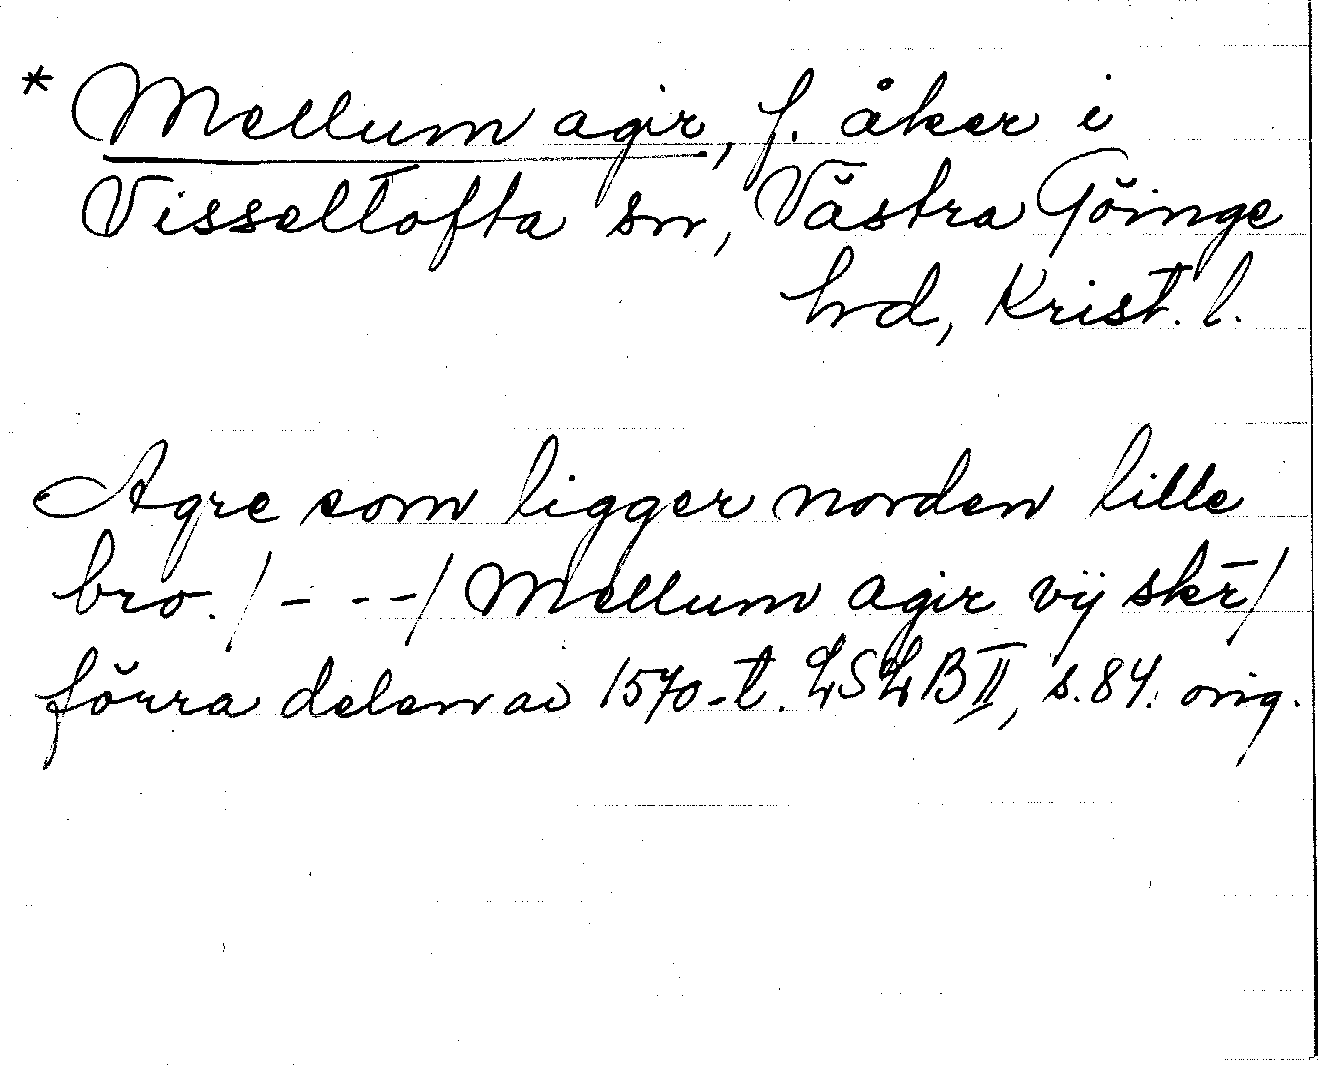 * Mellum agir, f. åker i
Visseltofta sn, Västra Göinge
hd, Krist. l.
Agre som ligger norden lille
bro. /- --/ Mellum agir vij skr̄/
förra delen av 1570-t. LSLB II, s. 84. orig.